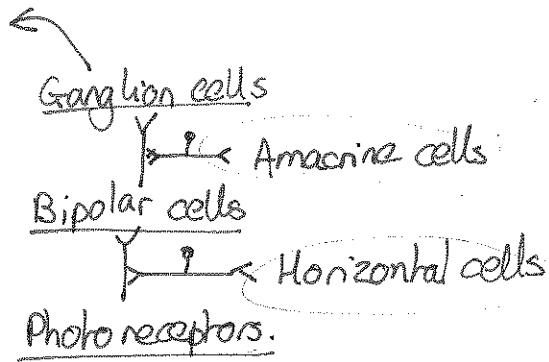 Ganglion cells
Amacrine cells
Bipolar cells
Horizontal cells
Photoreceptors.